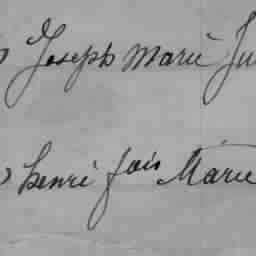 Joseph Marie
henri fois Marie